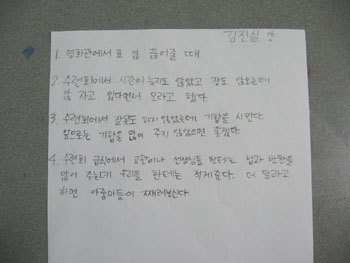 김진실
1. 영화관에서 표 안 끊어줄 때
2. 수련회에서 시간이 늦지도 않았고 잠도 않오는데
안 자고 있다면서 모라고 했다
3. 수련회에서 잘못도 하지 않았는데 기합을 시킨다.
앞으로는 기합을 많이 주지 않았으면 좋겠다.
4. 수련회 급식에서 교관이나 선생님들 한테는 밥과 반찬을
많이 주는데 우리들 한테는 적게준다. 더 달라고
하면 아줌마들이 째려보신다.